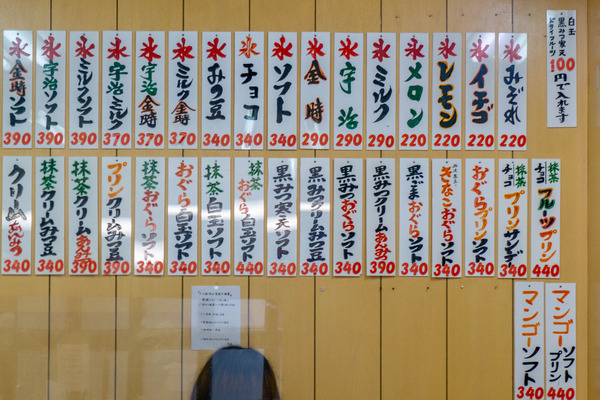 白玉
黒みつ寒天
ドライフルーツ
100円で入れます
氷みぞれ 220
氷イチゴ 220
氷レモン 220
氷メロン 220
氷ミルク 290
氷宇治 290
氷金時 290
氷ソフト 340
氷チョコ 340
氷みつ豆 340
氷ミルク金時 370
氷宇治金時 370
氷宇治ミルク 370
氷ミルクソフト 390
氷宇治ソフト 390
氷金時ソフト 390
抹茶チョコ フルーツプリン 440
抹茶チョコ プリンサンデー 340
おぐらプリンソフト 340
きなこおぐらソフト 340
黒ごまおぐらソフト 340
黒みつクリームあんみつ 390
黒みつおぐらソフト 340
黒みつクリームみつ豆 340
黒みつ寒天ソフト 340
抹茶おぐら白玉ソフト 440
抹茶白玉ソフト 340
おぐら白玉ソフト 340
抹茶おぐらソフト 340
プリンクリームみつ豆 390
抹茶クリームあんみつ 390
抹茶クリームみつ豆 340
クリームあんみつ 340
マンゴーソフトプリン 440
マンゴーソフト 340